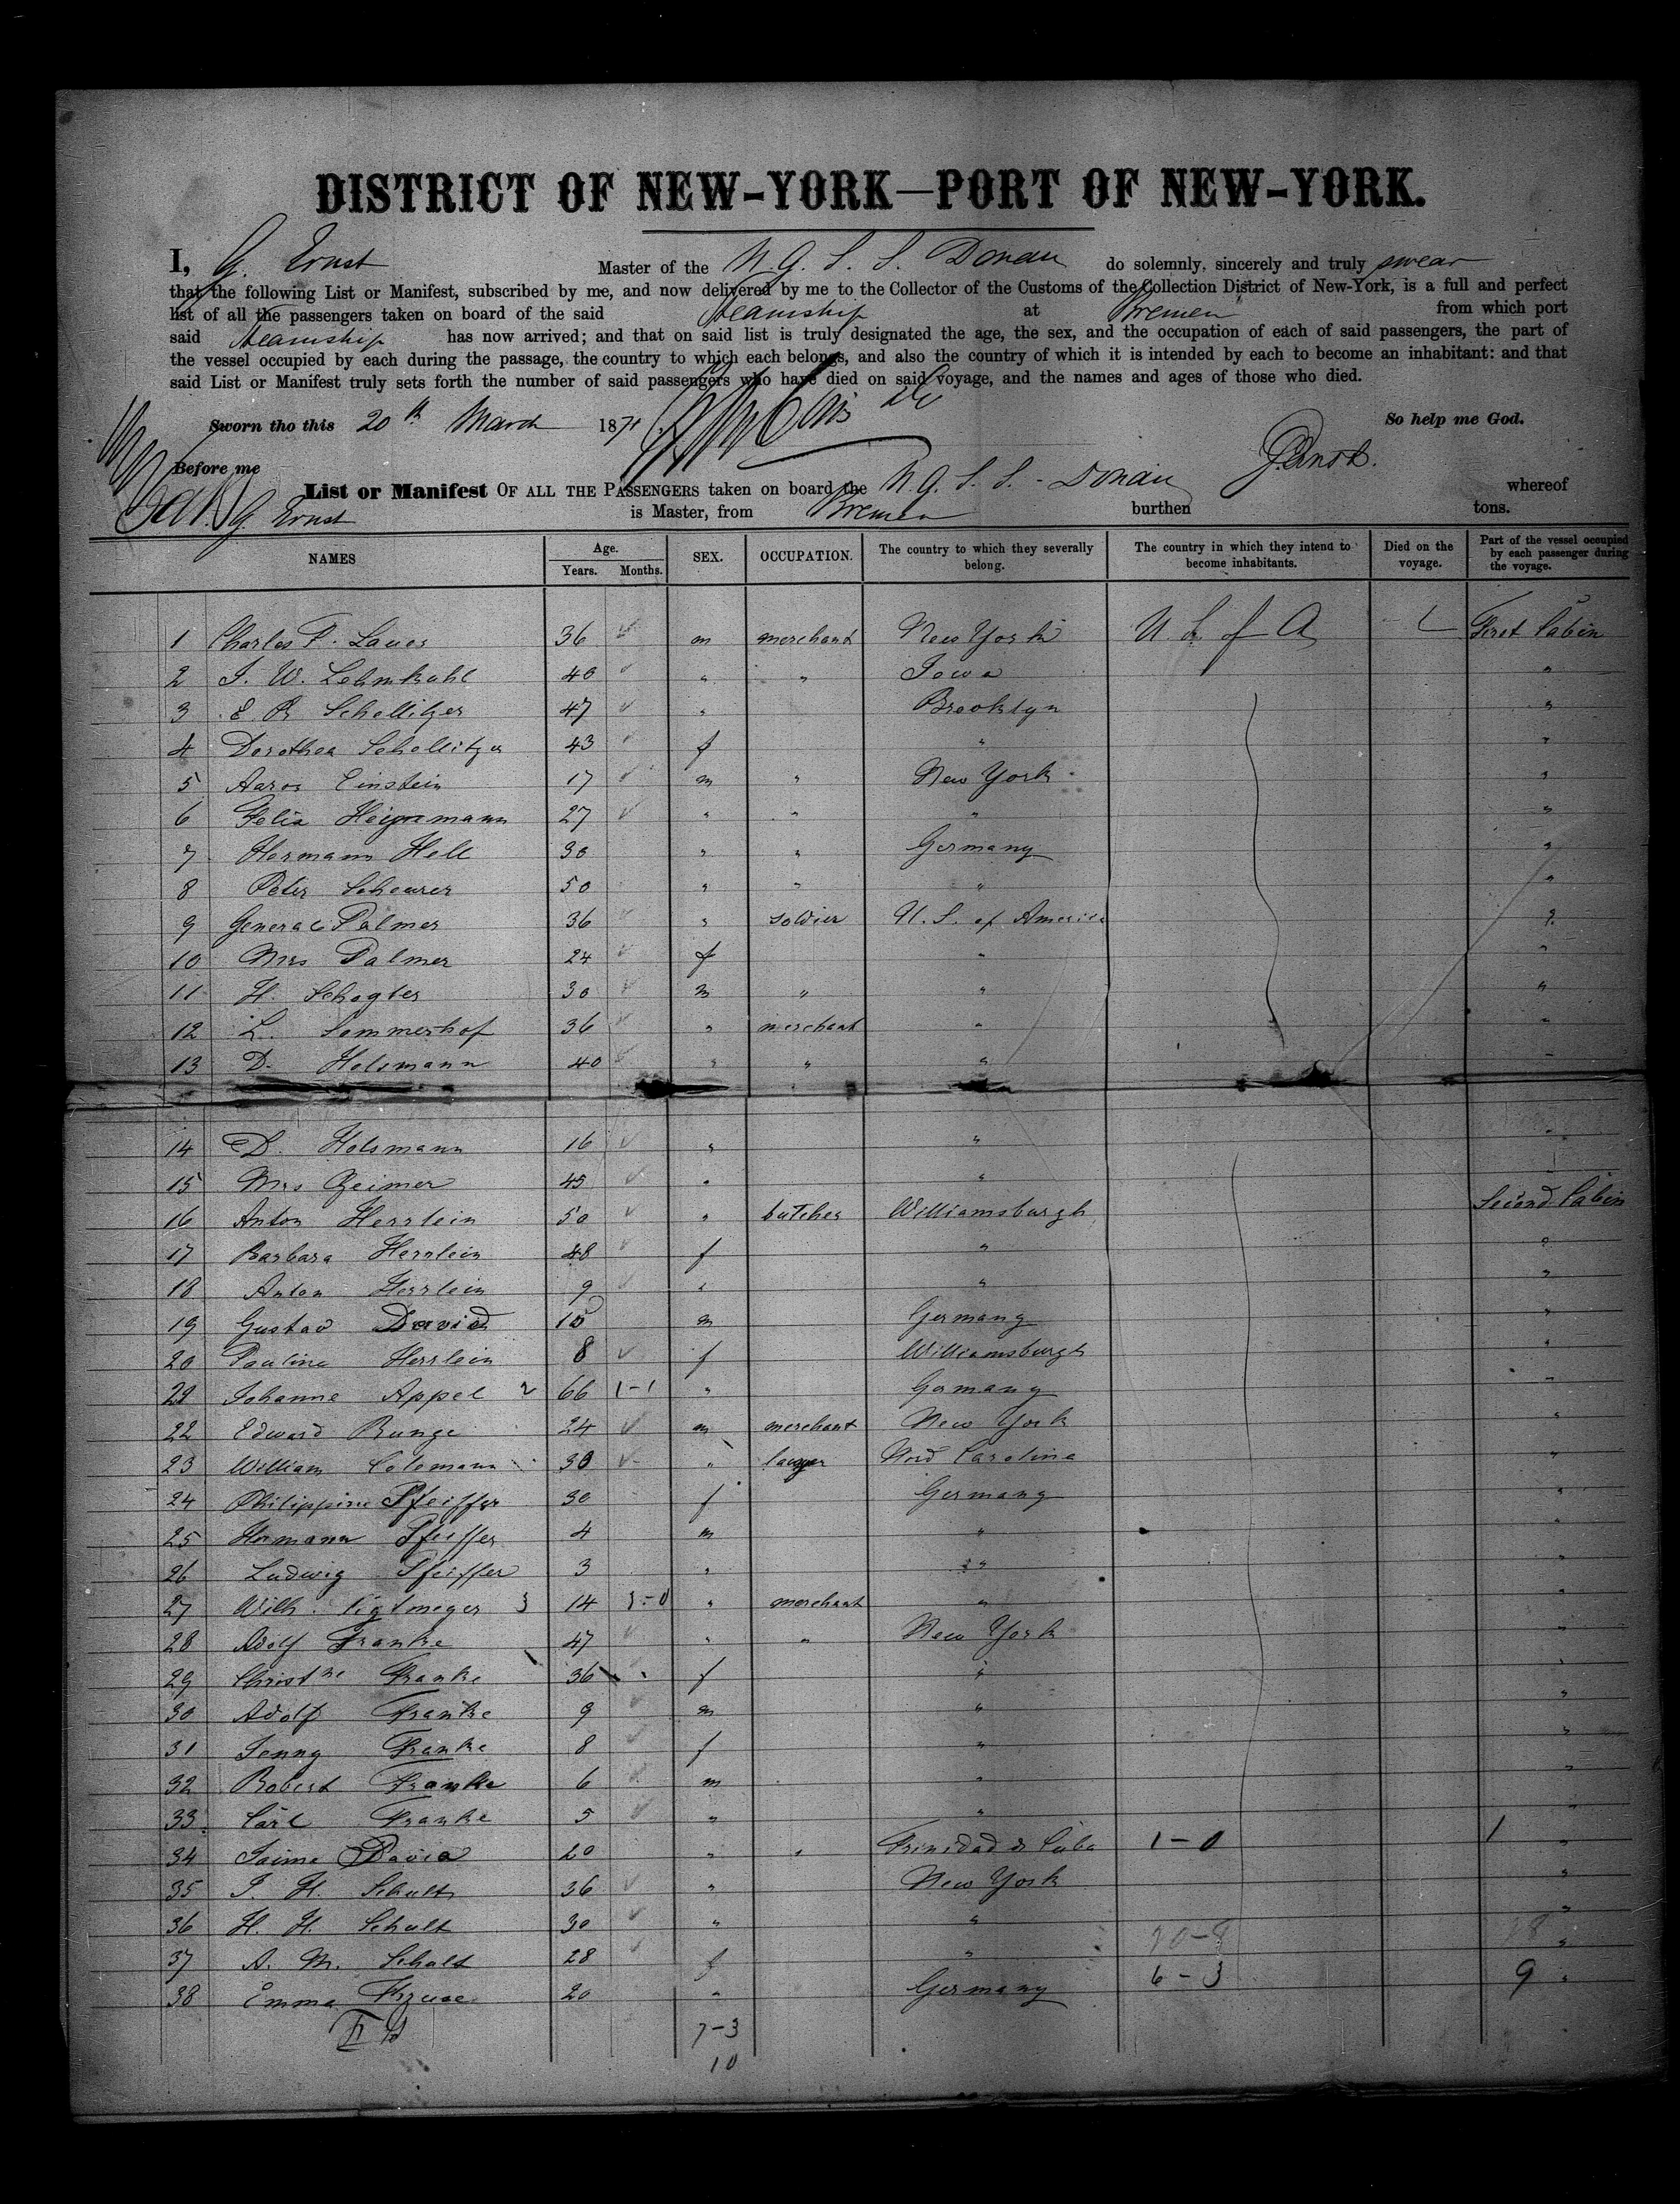 DISTRICT OF NEW-YORK—PORT OF NEW-YORK.
I, G. Ernst Master of the N. G. S. S. Donau do solemnly, sincerely and truly swear
that the following List or Manifest, subscribed by me, and now delivered by me to the Collector of the Customs of the Collection District of New-York, is a full and perfect
list of all the passengers taken on board of the said Steamship at Bremen from which port
said Steamship has now arrived; and that on said list is truly designated the age, the sex, and the occupation of each of said passengers, the part of
the vessel occupied by each during the passage, the country to which each belongs, and also the country of which it is intended by each to become an inhabitant: and that
said List or Manifest truly sets forth the number of said passengers who have died on said voyage, and the names and ages of those who died.
Sworn tho this 20th March 1871 So help me God.
Before me G. Ernst.
List or Manifest OF ALL THE PASSENGERS taken on board the N. G. S. S. - Donau whereof
G. Ernst is Master, from Bremen burthen tons.
NAMES Age. Years. Months. SEX. OCCUPATION. The country to which they severally belong. The country in which they intend to become inhabitants. Died on the voyage. Part of the vessel occupied by each passenger during the voyage.
1 Charles F. 36 m merchant New York U. S. of A First Cabin
2 J. W. Lehmkuhl 40 " " Iowa "
3 E R Schellitzer 47 " Brooklyn "
4 Dorothea Schellitzer 43 f " "
5 Aaron Einstein 17 m " New York "
6 Felix Heinemann 27 " " " "
7 Hermann Hell 30 " " Germany "
8 Peter Scheurer 50 " " " "
9 General Palmer 36 " soldier U. S. of America "
10 Mrs Palmer 24 f " "
11 H. 30 m " " "
12 L. Sommerhof 36 " merchant " "
13 D. Holsmann 40 " " " "
14 D. Holsmann 16 " " "
15 Mrs 45 " "
16 Anton Herrlein 50 " butcher Williamsburgh Second Cabin
17 Barbara Herrlein 48 f " "
18 Anton Herrlein 9 " " "
19 Gustav David 15 m Germany "
20 Pauline Herrlein 8 f Williamsburgh "
21 Johanne Appel 2 66 1-1 " Germany "
22 Edward Runge 24 m merchant New York "
23 William Colemann 30 " lawyer Nord Carolina "
24 Philippine Pfeiffer 30 f Germany "
25 Hermann Pfeiffer 4 m " "
26 Ludwig Pfeiffer 3 " " "
27 Wilh. 3 14 3-0 " merchant " "
28 Adolf Franke 47 " " New York "
29 Christne Franke 36 f " "
30 Adolf Franke 9 m " "
31 Jenny Franke 8 f " "
32 Robert Franke 6 m " "
33 Carl Franke 5 " " "
34 Jaime 20 " " Trinidad de Cuba 1-0 1 "
35 J. H. Schult 36 " New York "
36 H. H. Schult 30 " " "
37 A. M. Schult 28 f " "
38 Emma 20 " Germany 6-3 9 "
7-3
10